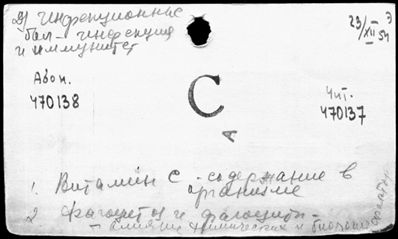 2) инфекционные
бол - инфекция
и иммунитет
23/XII 54
Э
Абон.
470138
С
А
Чит.
470137
1. Витамин С - содержание в
организме
2 Фагоциты и фагоцити-
- влияние химических и биологич